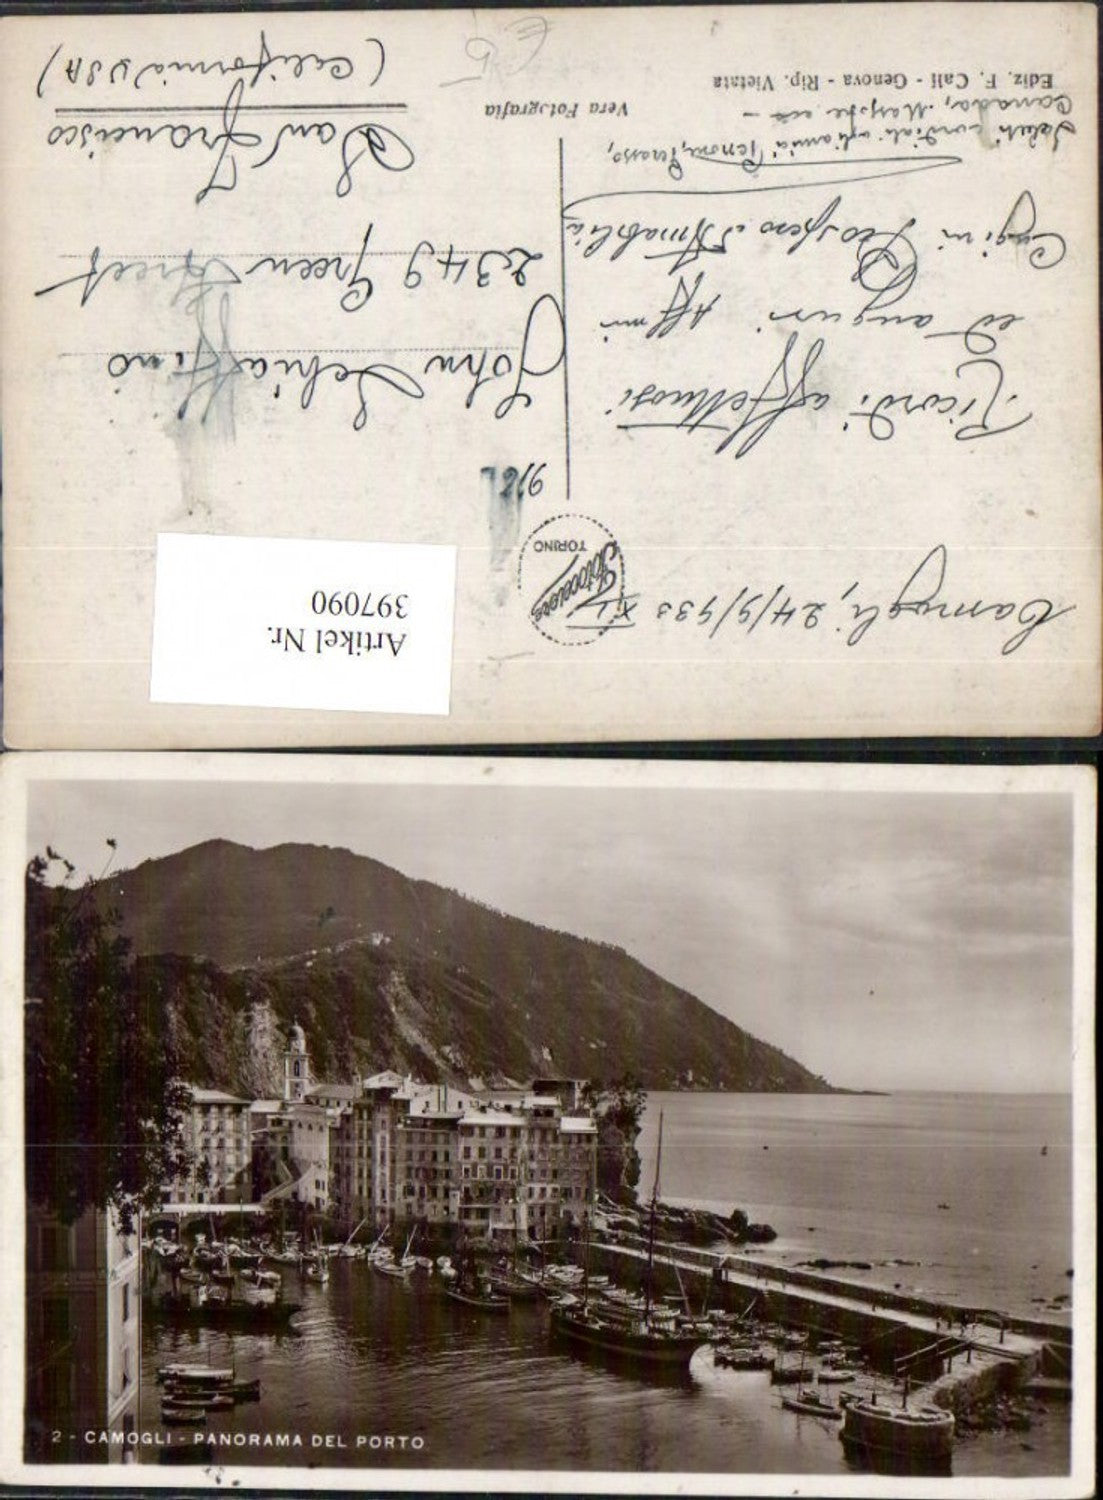 Camogli, 24/9/933 XI
Ricordi affettuosi
ed auguri Aff mi
Cugini Prospero & Amabilia
Saluti cordiali agli amici
Canada,
Ediz. F. Cali - Genova - Rip. Vietata
Vera Fotografia
Fotocelere
TORINO
John Schiaffino
2349 Green Street
San Francisco
(California USA)
Artikel Nr.
397090
2 - CAMOGLI - PANORAMA DEL PORTO